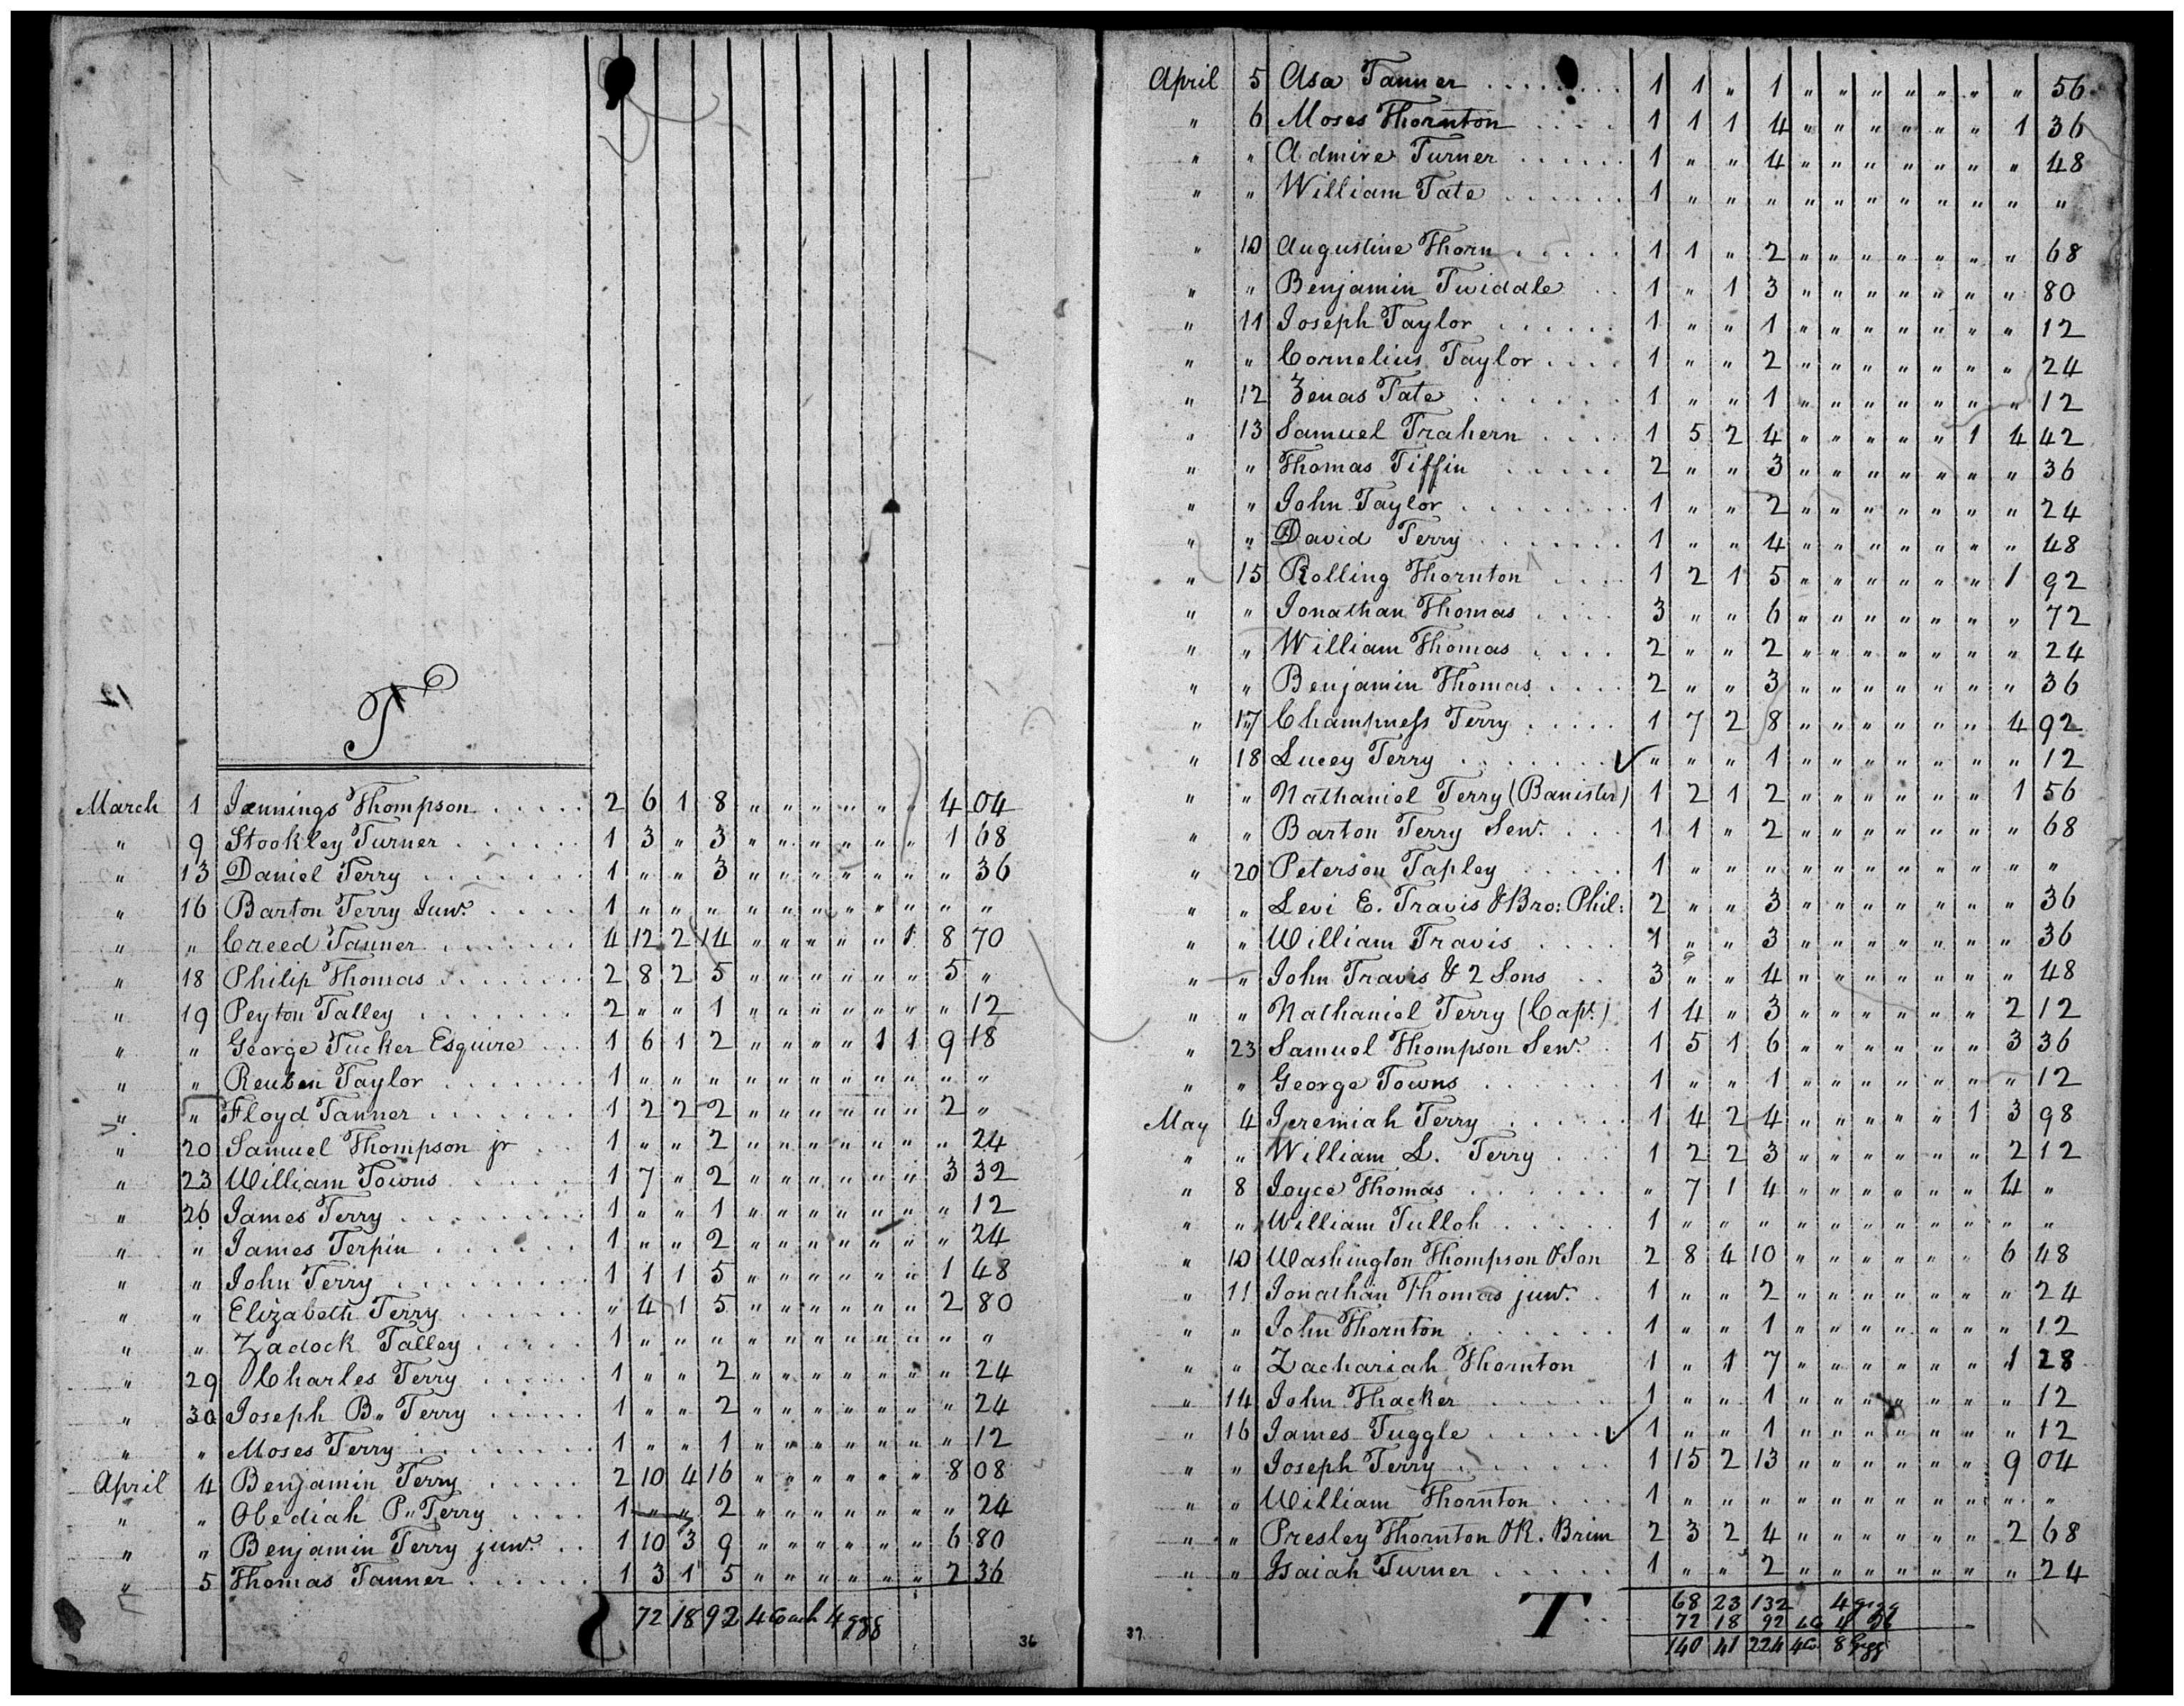 T
March 1 Jennings Thompson . . . . . 2 6 1 8 " " " " " " 4 04
" 9 Stookley Turner . . . . . . 1 3 " 3 " " " " " " 1 68
" 13 Daniel Terry . . . . . . . 1 " " 3 " " " " " " " 36
" 16 Barton Terry Junr. . . . . 1 " " " " " " " " " " "
" " Creed Tanner . . . . . . . 4 12 2 14 " " " " " 1 8 70
" 18 Philip Thomas . . . . . . . 2 8 2 5 " " " " " " 5 "
" 19 Peyton Talley . . . . . . . 2 " " 1 " " " " " " " 12
" " George Tucker Esquire . . . 1 6 1 2 " " " " 1 1 9 18
" " Reuben Taylor . . . . . . . 1 " " " " " " " " " " "
" " Floyd Tanner . . . . . . . 1 2 2 2 " " " " " " 2 "
" 20 Samuel Thompson jr . . . 1 " " 2 " " " " " " " 24
" 23 William Towns . . . . . . 1 7 " 2 " " " " " " 3 32
" 26 James Terry . . . . . . . . 1 " " 1 " " " " " " " 12
" " James Terpin . . . . . . . 1 " " 2 " " " " " " " 24
" " John Terry . . . . . . . . 1 1 1 5 " " " " " " 1 48
" " Elizabeth Terry . . . . . . " 4 1 5 " " " " " " 2 80
" " Zadock Talley . . . . . 1 " " " " " " " " " " "
" 29 Charles Terry . . . . . . 1 " " 2 " " " " " " " 24
" 30 Joseph B" Terry . . . . . 1 " " 2 " " " " " " " 24
" " Moses Terry . . . . . . . . 1 " " 1 " " " " " " " 12
April 4 Benjamin Terry . . . . . 2 10 4 16 " " " " " " 8 08
" " Obediah P" Terry . . . . 1 " " 2 " " " " " " " 24
" " Benjamin Terry junr. . . 1 10 3 9 " " " " " " 6 80
" 5 Thomas Tanner . . . . . . 1 3 1 5 " " " " " " 2 36
72 18 92 4 Coach 4 ggg
36
April 5 Asa Tanner . . . . . . . . 1 1 " 1 " " " " " " " 56
" 6 Moses Thornton . . . . 1 1 1 4 " " " " " " 1 36
" " Admire Turner . . . . . . 1 " " 4 " " " " " " " 48
" " William Tate . . . . . . 1 " " " " " " " " " " "
" 10 Augustine Thorn . . . . . 1 1 " 2 " " " " " " " 68
" " Benjamin Twiddle . . 1 " 1 3 " " " " " " " 80
" 11 Joseph Taylor . . . . . . 1 " " 1 " " " " " " " 12
" " Cornelius Taylor . . . . 1 " " 2 " " " " " " " 24
" 12 Zenas Tate . . . . . . 1 " " 1 " " " " " " " 12
" 13 Samuel Trahern . . . . 1 5 2 4 " " " " " 1 4 42
" " Thomas Tiffin . . . . . 2 " " 3 " " " " " " " 36
" " John Taylor . . . . . . . . 1 " " 2 " " " " " " " 24
" " David Terry . . . . . . . 1 " " 4 " " " " " " " 48
" 15 Rolling Thornton . . . . 1 2 1 5 " " " " " " 1 92
" " Jonathan Thomas . . . . 3 " " 6 " " " " " " " 72
" " William Thomas . . . . 2 " " 2 " " " " " " " 24
" " Benjamin Thomas . . . . 2 " " 3 " " " " " " " 36
" 17 Champness Terry . . . . . 1 7 2 8 " " " " " " 4 92
" 18 Lucey Terry . . . . . . . ✓ " " " 1 " " " " " " " 12
" " Nathaniel Terry (Banister) 1 2 1 2 " " " " " " 1 56
" " Barton Terry Senr. . . . 1 1 " 2 " " " " " " " 68
" 20 Peterson Tapley . . . . . 1 " " " " " " " " " " "
" " Levi E. Travis & Bro: Phil: 2 " " 3 " " " " " " " 36
" " William Travis . . . . 1 " " 3 " " " " " " " 36
" " John Travis & 2 Sons . . 3 " " 4 " " " " " " " 48
" " Nathaniel Terry (Capt.) 1 4 " 3 " " " " " " 2 12
" 23 Samuel Thompson Senr. . 1 5 1 6 " " " " " " 3 36
" " George Towns . . . . . . 1 " " 1 " " " " " " " 12
May 4 Jeremiah Terry . . . . . . 1 4 2 4 " " " " " 1 3 98
" " William L. Terry . . . 1 2 2 3 " " " " " " 2 12
" 8 Joyce Thomas . . . . . . " 7 1 4 " " " " " " 4 "
" " William Tulloh . . . . . 1 " " " " " " " " " " "
" 10 Washington Thompson & Son 2 8 4 10 " " " " " " 6 48
" 11 Jonathan Thomas junr. . 1 " " 2 " " " " " " " 24
" " John Thornton . . . . . . 1 " " 1 " " " " " " " 12
" " Zachariah Thornton 1 " 1 7 " " " " " " 1 28
" 14 John Thacker . . . . . 1 " " 1 " " " " " " " 12
" 16 James Tuggle . . . . . ✓ 1 " " 1 " " " " " " " 12
" " Joseph Terry . . . . . . 1 15 2 13 " " " " " " 9 04
" " William Thornton . . . 1 " " " " " " " " " " "
" " Presley Thornton & R. Brim 2 3 2 4 " " " " " " 2 68
" " Isaiah Turner . . . . . 1 " " 2 " " " " " " " 24
T
68 23 132 4
72 18 92 4 C 4
140 41 224 4 Co 8
37